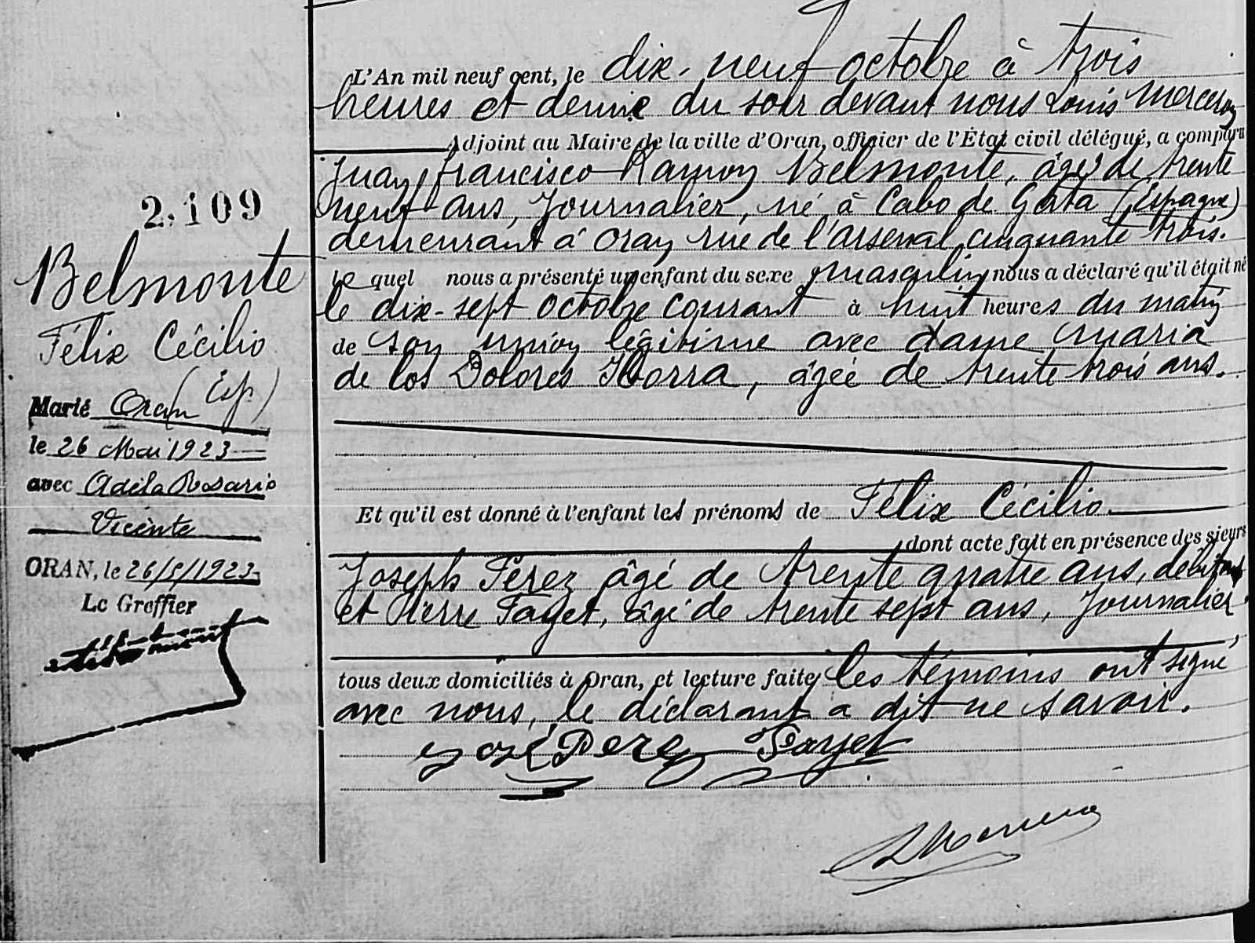 2.109
Belmonte
Félix Cécilio
(Esp)
Marié Oran
le 26 Mai 1923
avec Adela Rosario
Vicente
ORAN, le 26/5/1923
Le Greffier
L'An mil neuf cent, le dix-neuf octobre à trois
heures et demie du soir devant nous Louis
Adjoint au Maire de la ville d'Oran, officier de l'État civil délégué, a comparu
Juan, francisco Ramon Belmonte, âgé de trente
neuf ans, Journalier, né à Cabo de Gata (Espagne)
demeurant à Oran rue de l'arsenal cinquante trois.
le quel nous a présenté un enfant du sexe masculin nous a déclaré qu'il était né
le dix-sept octobre courant à huit heures du matin
de son union légitime avec dame Maria
de los Dolores Iborra, âgée de trente trois ans.
Et qu'il est donné à l'enfant les prénoms de Félix Cécilio.
dont acte fait en présence des sieurs
Joseph Pérez âgé de trente quatre ans, débitant
et Pierre Payet, âgé de trente sept ans, Journalier
tous deux domiciliés à Oran, et lecture faite les témoins ont signé
avec nous, le déclarant a dit ne savoir.
José Perez Payet